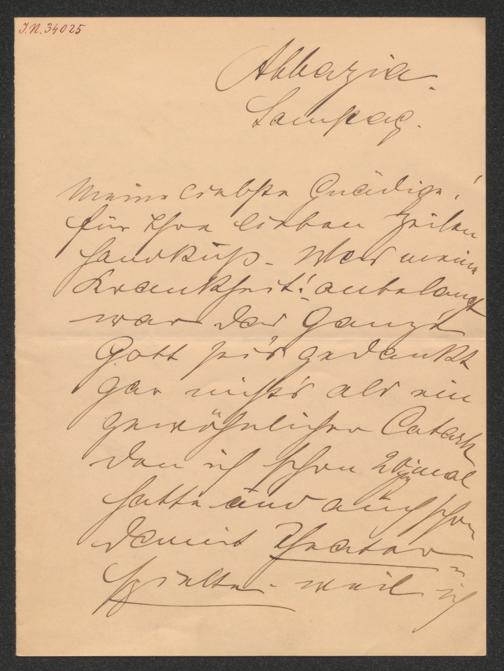 J.N. 34025
Abbazia.
Samstag.
Meine liebste Gnädige!
für Ihre lieben Zeilen
Handkuß. Was meine
Krankheit! anbelangt
war das Ganze
Gott sei's gedankt
gar nichts als ein
gewöhnlicher Catarh
den ich schon 20mal
hatte und auch schon
damit Theater
spielte. weil ich